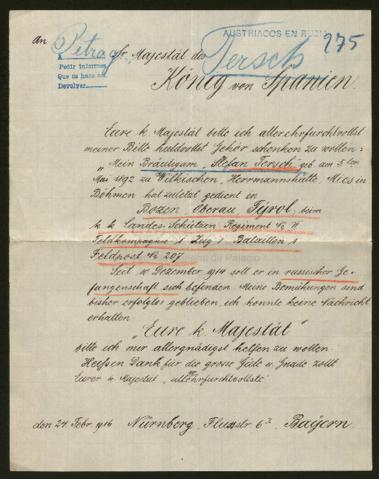 AUSTRIACOS EN RUSIA
275
An
Petrog
Sr Majestät der
Tersch
Pedir informes
Que us hace en
Devolver
König von Spanien.
Eure k. Majestät bitte ich allerehrfurchtvollst
meiner Bitte huldvollst Gehör schenken zu wollen:
"Mein Bräutigam, Stefan Tersch, geb. am 5ten
Mai 1892 zu Wilkischen, Herrmannshütte, Mies in
Böhmen hat zuletzt gedient in
Bozen Oberau Tyrol, beim
k. k. Landes-Schützen Regiment № II
Feldkompagnie 1 Zug 1 Bataillon 1
Feldpost № 207.
Seit 11 Dezember 1914 soll er in russischer Ge-
fangenschaft sich befinden. Meine Bemühungen sind
bisher erfolglos geblieben, ich konnte keine Nachricht
erhalten.
"Eure k. Majestät"
bitte ich mir allergnädigst helfen zu wollen.
Heißen Dank für die grosse Güte u. Gnade zollt
Eurer k. Majestät "allerehrfurchtvollst"
den 24. Febr 1916 Nürnberg, Flusstr 6³. Bayern.